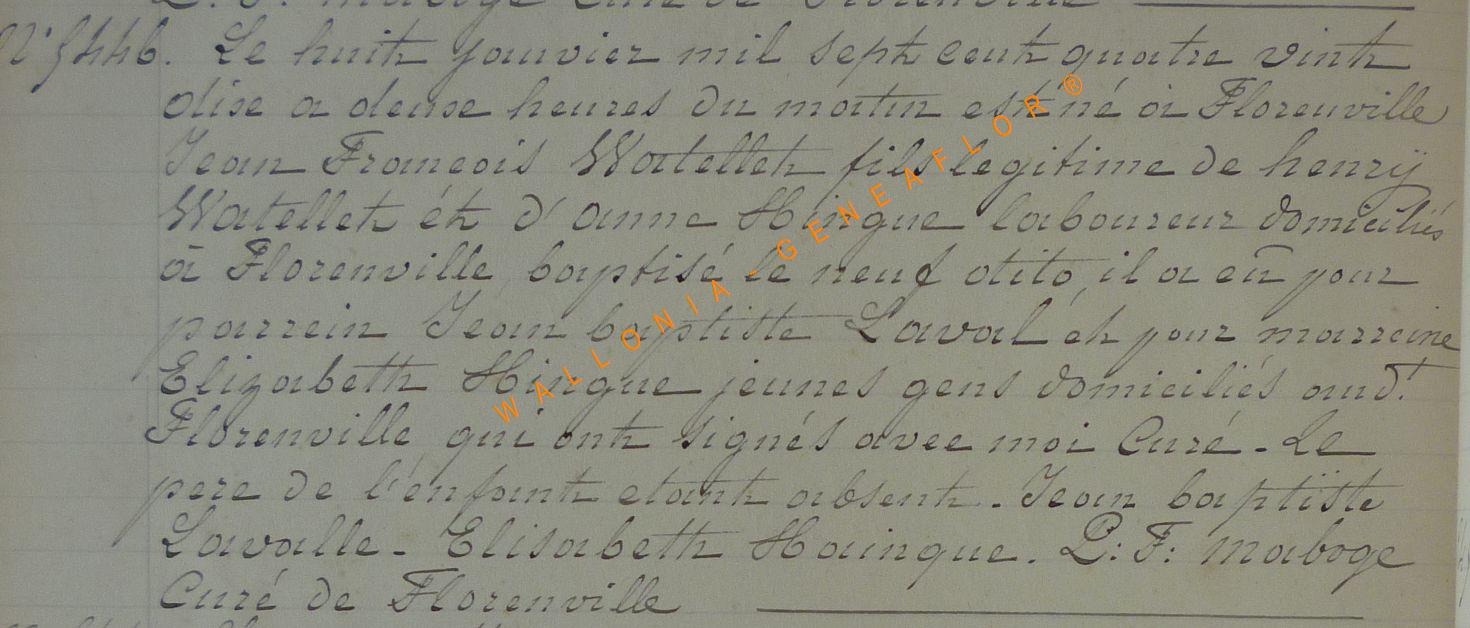 P. F. maboge Curé de Florenville
N° 5446. Le huit janvier mil sept cent quatre vint
dise a deuse heures du matin est né à Florenville
Jean Francois Watellet fils legitime de henry
Watellet ét d'anne Hingue laboureur domiciliés
à Florenville, baptisé le neuf dito, il a eu pour
parrein Jean baptiste Laval ét pour marreine
Elizabeth Hingue jeunes gens domiciliés aud.t
Florenville qui ont signés avec moi Curé - Le
pere de l'énfant etant absent. Jean baptiste
Lavalle - Elisabeth Haingue. P: F: maboge
Curé de Florenville
WALLONIA - GENEAFLOR ®